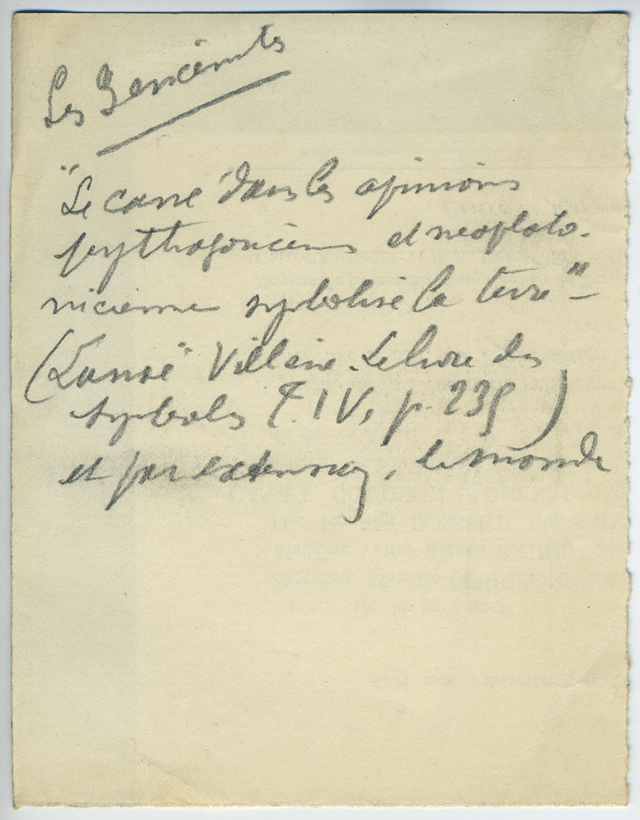 Les
"Le carré dans les opinions
pythagoriciens et néoplato-
nicienne symbolise la terre" -
(Lanoë Villène. Le livre des
symboles T. IV, p. 235)
et par extension, le monde